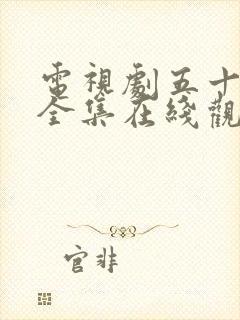 電視劇五十
全集在綫觀
官非